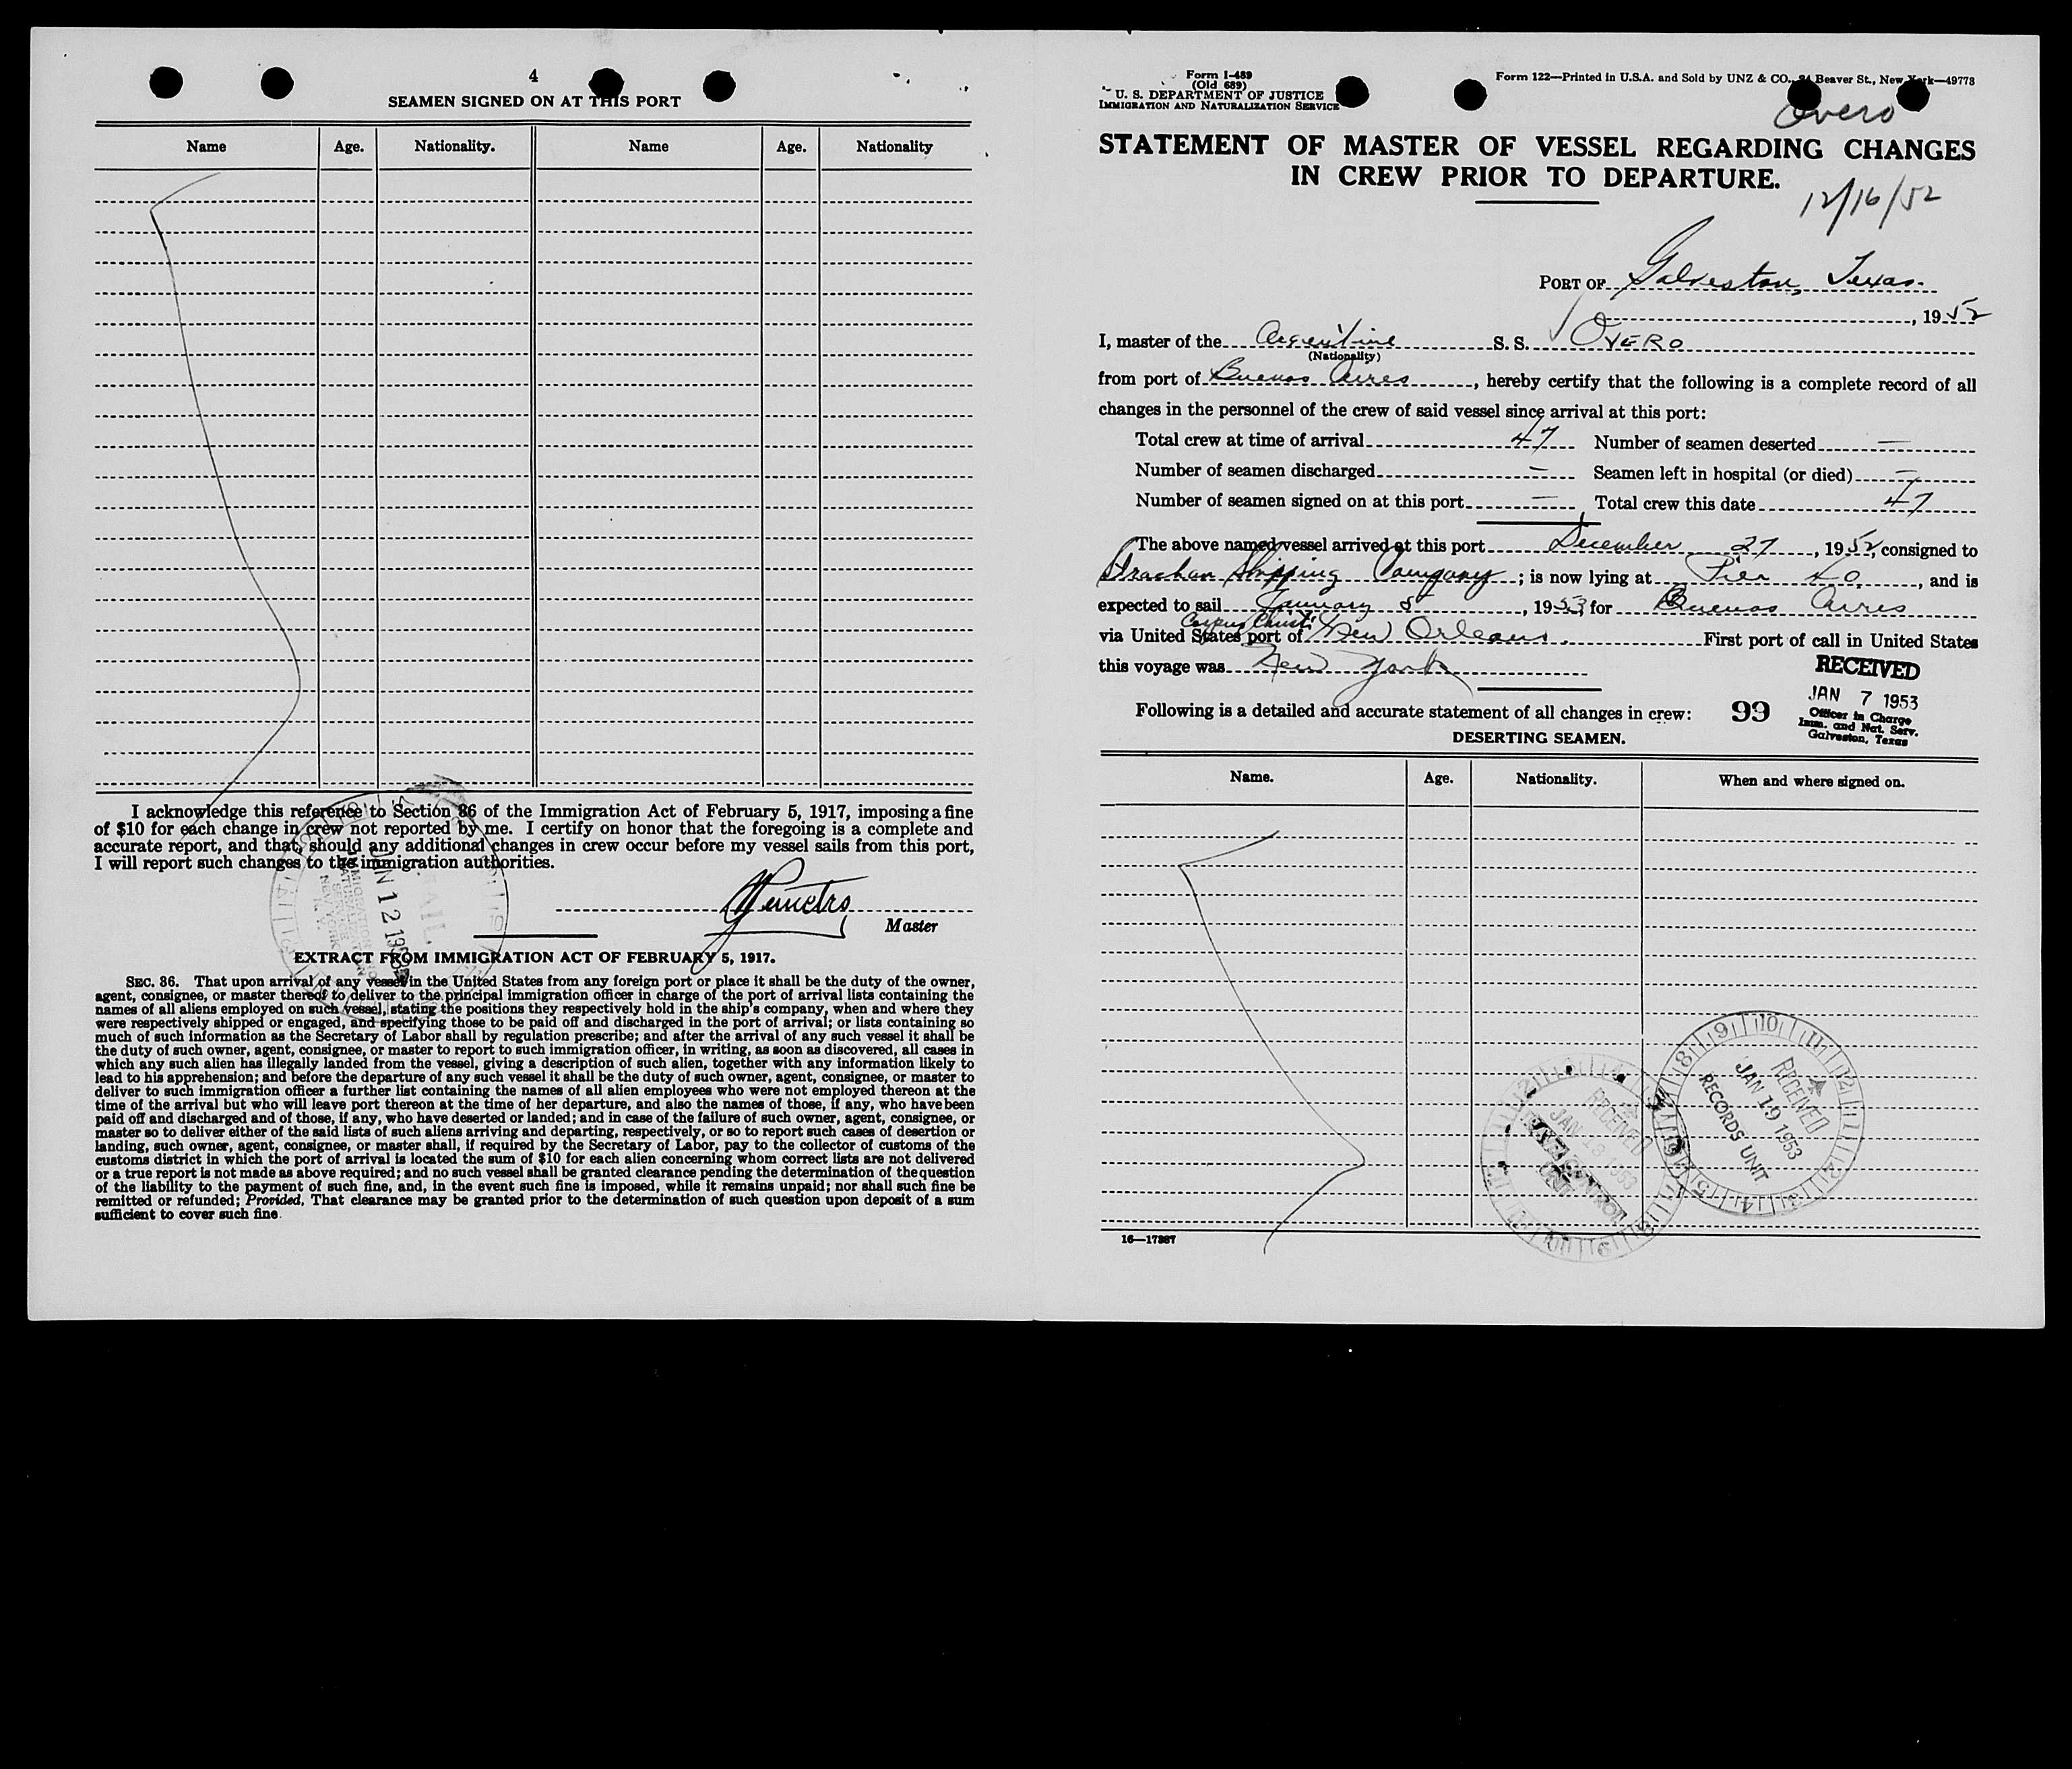 4
SEAMEN SIGNED ON AT THIS PORT
Name Age. Nationality. Name Age. Nationality
I acknowledge this reference to Section 36 of the Immigration Act of February 5, 1917, imposing a fine
of $10 for each change in crew not reported by me. I certify on honor that the foregoing is a complete and
accurate report, and that, should any additional changes in crew occur before my vessel sails from this port,
I will report such changes to the immigration authorities.
Master
EXTRACT FROM IMMIGRATION ACT OF FEBRUARY 5, 1917.
SEC. 36. That upon arrival of any vessel in the United States from any foreign port or place it shall be the duty of the owner,
agent, consignee, or master thereof to deliver to the principal immigration officer in charge of the port of arrival lists containing the
names of all aliens employed on such vessel, stating the positions they respectively hold in the ship's company, when and where they
were respectively shipped or engaged, and specifying those to be paid off and discharged in the port of arrival; or lists containing so
much of such information as the Secretary of Labor shall by regulation prescribe; and after the arrival of any such vessel it shall be
the duty of such owner, agent, consignee, or master to report to such immigration officer, in writing, as soon as discovered, all cases in
which any such alien has illegally landed from the vessel, giving a description of such alien, together with any information likely to
lead to his apprehension; and before the departure of any such vessel it shall be the duty of such owner, agent, consignee, or master to
deliver to such immigration officer a further list containing the names of all alien employees who were not employed thereon at the
time of the arrival but who will leave port thereon at the time of her departure, and also the names of those, if any, who have been
paid off and discharged and of those, if any, who have deserted or landed; and in case of the failure of such owner, agent, consignee, or
master so to deliver either of the said lists of such aliens arriving and departing, respectively, or so to report such cases of desertion or
landing, such owner, agent, consignee, or master shall, if required by the Secretary of Labor, pay to the collector of customs of the
customs district in which the port of arrival is located the sum of $10 for each alien concerning whom correct lists are not delivered
or a true report is not made as above required; and no such vessel shall be granted clearance pending the determination of the question
of the liability to the payment of such fine, and, in the event such fine is imposed, while it remains unpaid; nor shall such fine be
remitted or refunded; Provided, That clearance may be granted prior to the determination of such question upon deposit of a sum
sufficient to cover such fine.
JAN 12 1953
Form I-489
(Old 689)
U. S. DEPARTMENT OF JUSTICE
IMMIGRATION AND NATURALIZATION SERVICE
Form 122—Printed in U.S.A. and Sold by UNZ & CO., 24 Beaver St., New York—49773
Overo
STATEMENT OF MASTER OF VESSEL REGARDING CHANGES
IN CREW PRIOR TO DEPARTURE.
12/16/52
PORT OF Galveston, Texas.
, 1952
I, master of the Argentine S. S. OVERO
(Nationality)
from port of Buenos Aires, hereby certify that the following is a complete record of all
changes in the personnel of the crew of said vessel since arrival at this port:
Total crew at time of arrival 47 Number of seamen deserted —
Number of seamen discharged — Seamen left in hospital (or died) —
Number of seamen signed on at this port — Total crew this date 47
The above named vessel arrived at this port December 27, 1952, consigned to
Strachan Shipping Company; is now lying at Pier 40, and is
expected to sail January 8, 1953, for Buenos Aires
Corpus Christi
via United States port of New Orleans. First port of call in United States
this voyage was New York
RECEIVED
JAN 7 1953
Officer in Charge
Imm. and Nat. Serv.
Galveston, Texas
Following is a detailed and accurate statement of all changes in crew: 99
DESERTING SEAMEN.
Name. Age. Nationality. When and where signed on.
RECEIVED
JAN 19 1953
RECORDS UNIT
RECEIVED
16—17887